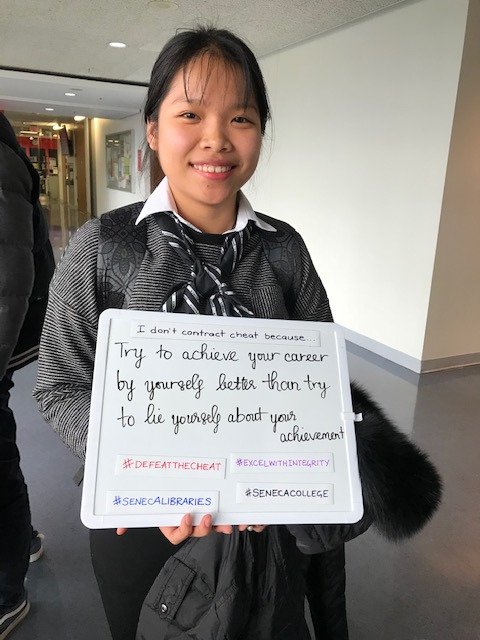 I don't contract cheat because...
Try to achieve your career
by yourself better than try
to lie yourself about your
achievement
#DEFEATTHECHEAT
#EXCELWITHINTEGRITY
#SENECALIBRARIES
#SENECACOLLEGE